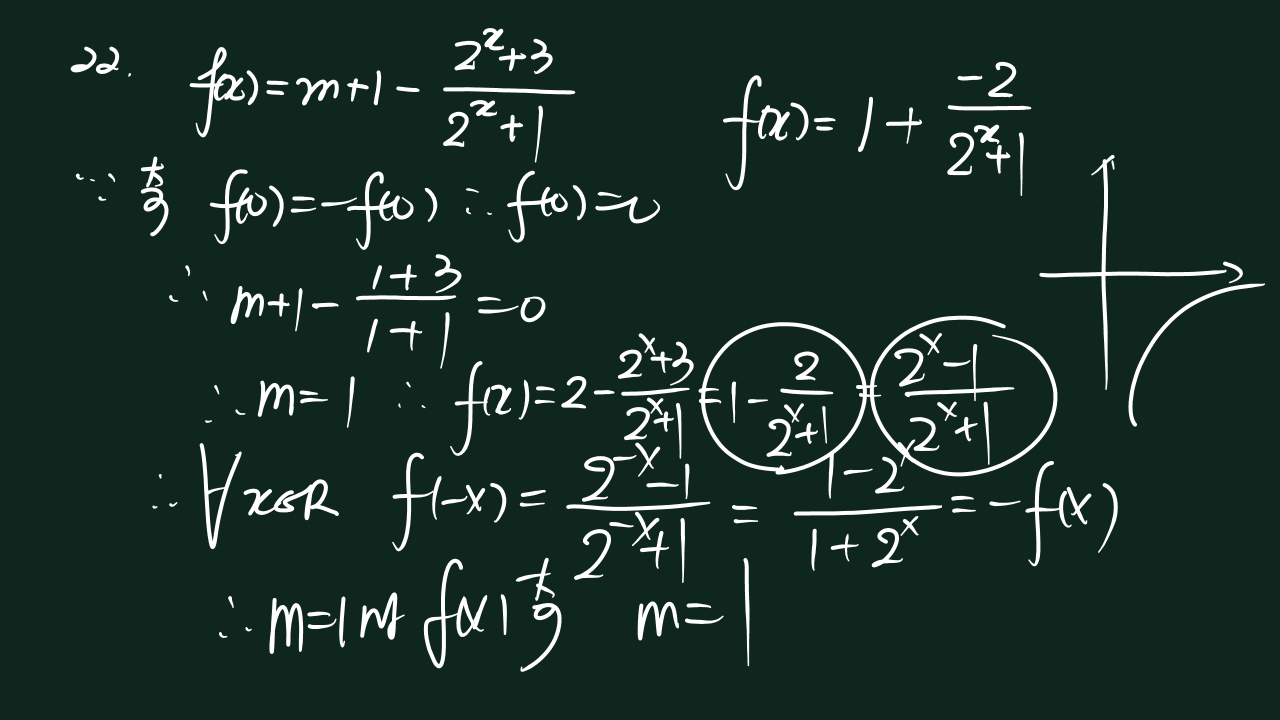 22. f(x)=m+1-\frac{2^x+3}{2^x+1}
∵奇 f(0)=-f(0) ∴f(0)=0
∴m+1-\frac{1+3}{1+1}=0
∴m=1 ∴f(x)=2-\frac{2^x+3}{2^x+1}=1-\frac{2}{2^x+1}=\frac{2^x-1}{2^x+1}
∴∀x∈R f(-x)=\frac{2^{-x}-1}{2^{-x}+1}=\frac{1-2^x}{1+2^x}=-f(x)
∴m=1时f(x)奇 m=1
f(x)=1+\frac{-2}{2^x+1}